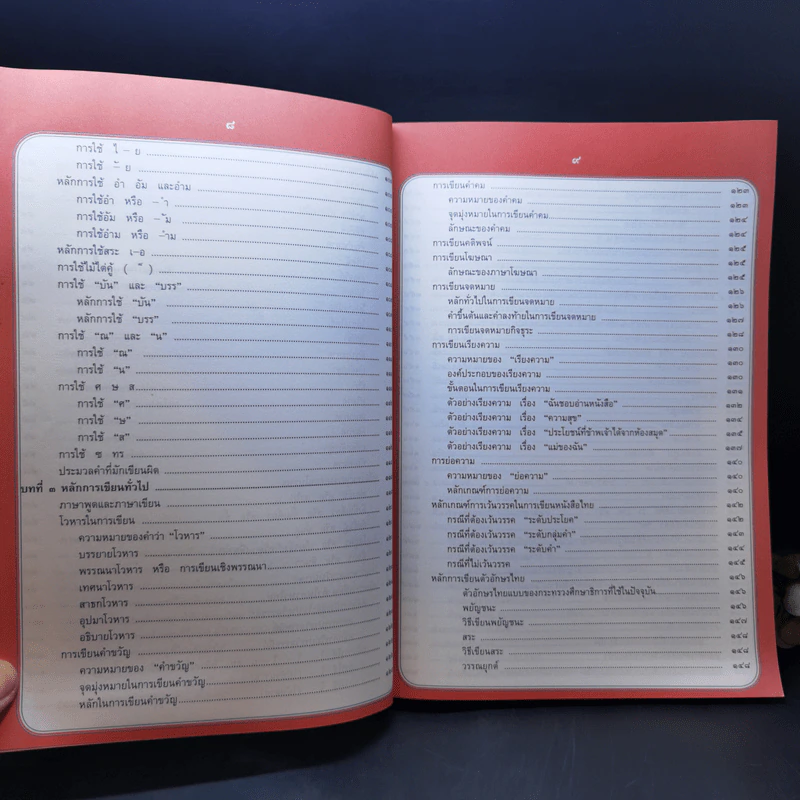 ๘
การใช้ ใ – ย
การใช้ –ั ย
หลักการใช้ อำ อัม และอำม
การใช้อำ หรือ –ำ
การใช้อัม หรือ –ัม
การใช้อำม หรือ –ำม
หลักการใช้สระ เ–อ
การใช้ไม้ไต่คู้ ( ็ )
การใช้ “บัน” และ “บรร”
หลักการใช้ “บัน”
หลักการใช้ “บรร”
การใช้ “ณ” และ “น”
การใช้ “ณ”
การใช้ “น”
การใช้ ศ ษ ส
การใช้ “ศ”
การใช้ “ษ”
การใช้ “ส”
การใช้ ซ ทร
ประมวลคำที่มักเขียนผิด
บทที่ ๓ หลักการเขียนทั่วไป
ภาษาพูดและภาษาเขียน
โวหารในการเขียน
ความหมายของคำว่า “โวหาร”
บรรยายโวหาร
พรรณนาโวหาร หรือ การเขียนเชิงพรรณนา
เทศนาโวหาร
สาธกโวหาร
อุปมาโวหาร
อธิบายโวหาร
การเขียนคำขวัญ
ความหมายของ “คำขวัญ”
จุดมุ่งหมายในการเขียนคำขวัญ
หลักในการเขียนคำขวัญ
๙
การเขียนคำคม ๑๒๓
ความหมายของคำคม ๑๒๓
จุดมุ่งหมายในการเขียนคำคม ๑๒๔
ลักษณะของคำคม ๑๒๔
การเขียนคติพจน์ ๑๒๕
การเขียนโฆษณา ๑๒๕
ลักษณะของภาษาโฆษณา ๑๒๕
การเขียนจดหมาย ๑๒๖
หลักทั่วไปในการเขียนจดหมาย ๑๒๖
คำขึ้นต้นและคำลงท้ายในการเขียนจดหมาย ๑๒๗
การเขียนจดหมายกิจธุระ ๑๒๘
การเขียนเรียงความ ๑๓๐
ความหมายของ “เรียงความ” ๑๓๐
องค์ประกอบของเรียงความ ๑๓๐
ขั้นตอนในการเขียนเรียงความ ๑๓๑
ตัวอย่างเรียงความ เรื่อง “ฉันชอบอ่านหนังสือ” ๑๓๒
ตัวอย่างเรียงความ เรื่อง “ความสุข” ๑๓๔
ตัวอย่างเรียงความ เรื่อง “ประโยชน์ที่ข้าพเจ้าได้จากห้องสมุด” ๑๓๕
ตัวอย่างเรียงความ เรื่อง “แม่ของฉัน” ๑๓๗
การย่อความ ๑๔๐
ความหมายของ “ย่อความ” ๑๔๐
หลักเกณฑ์การย่อความ ๑๔๐
หลักเกณฑ์การเว้นวรรคในการเขียนหนังสือไทย ๑๔๒
กรณีที่ต้องเว้นวรรค “ระดับประโยค” ๑๔๒
กรณีที่ต้องเว้นวรรค “ระดับกลุ่มคำ” ๑๔๓
กรณีที่ต้องเว้นวรรค “ระดับคำ” ๑๔๔
กรณีที่ไม่เว้นวรรค ๑๔๕
หลักการเขียนตัวอักษรไทย ๑๔๖
ตัวอักษรไทยแบบของกระทรวงศึกษาธิการที่ใช้ในปัจจุบัน ๑๔๖
พยัญชนะ ๑๔๖
วิธีเขียนพยัญชนะ ๑๔๗
สระ ๑๔๘
วิธีเขียนสระ ๑๔๘
วรรณยุกต์ ๑๔๘